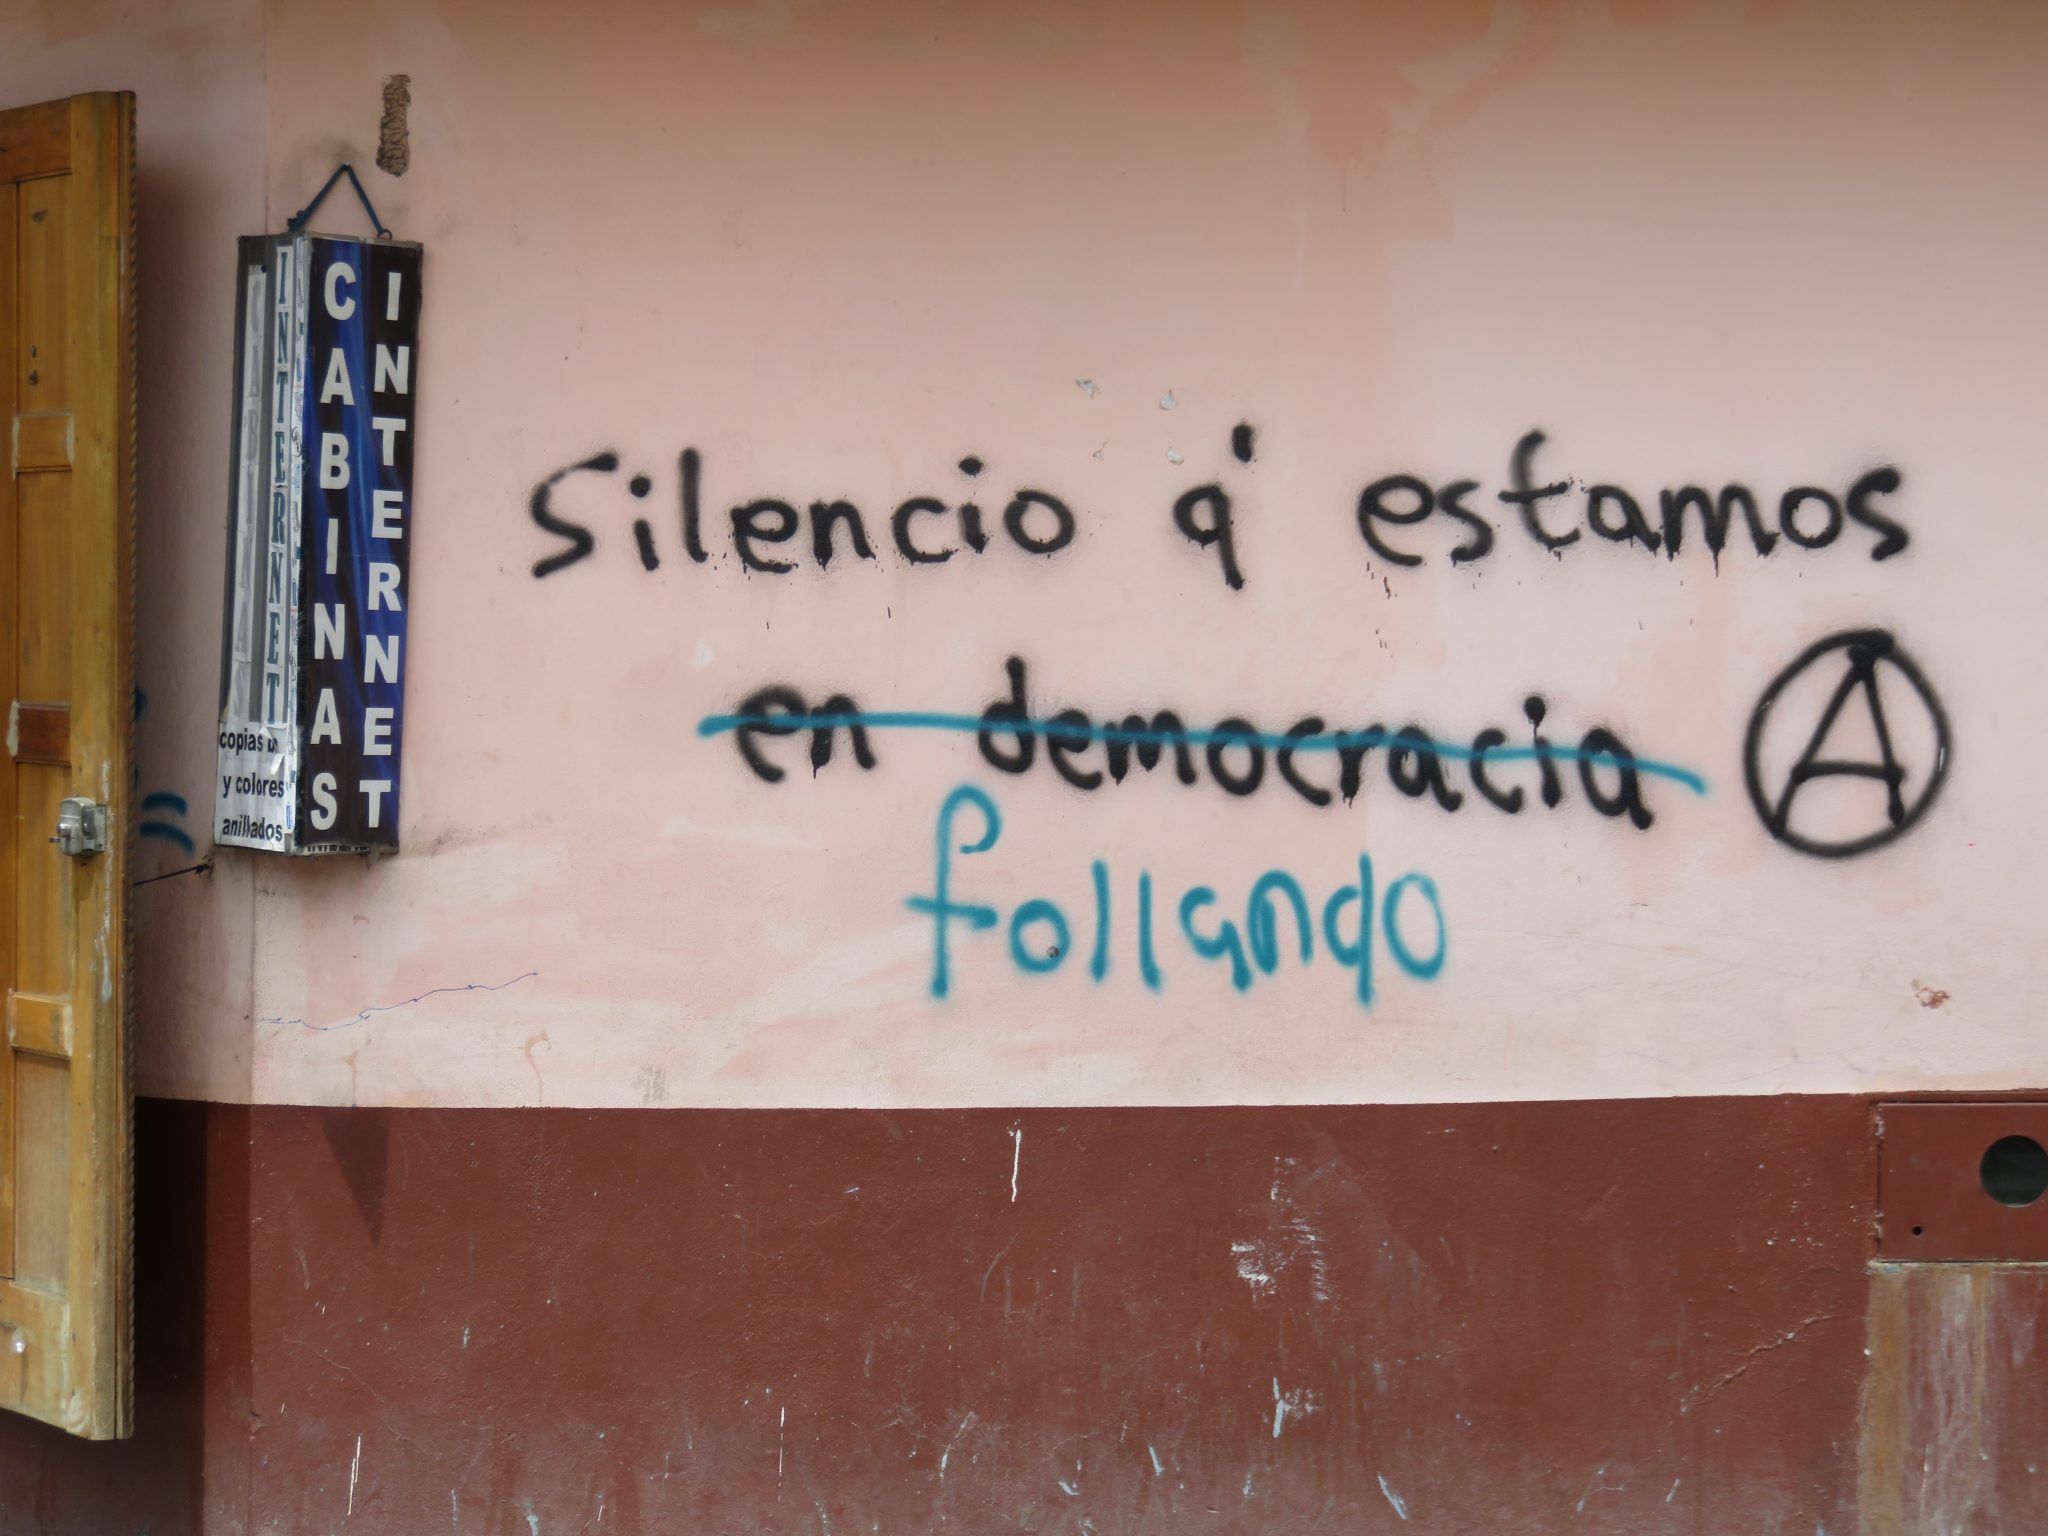 CABINAS
INTERNET
CABINAS
INTERNET
copias b
y colores
anillados
Silencio q' estamos
en democracia
A
follando